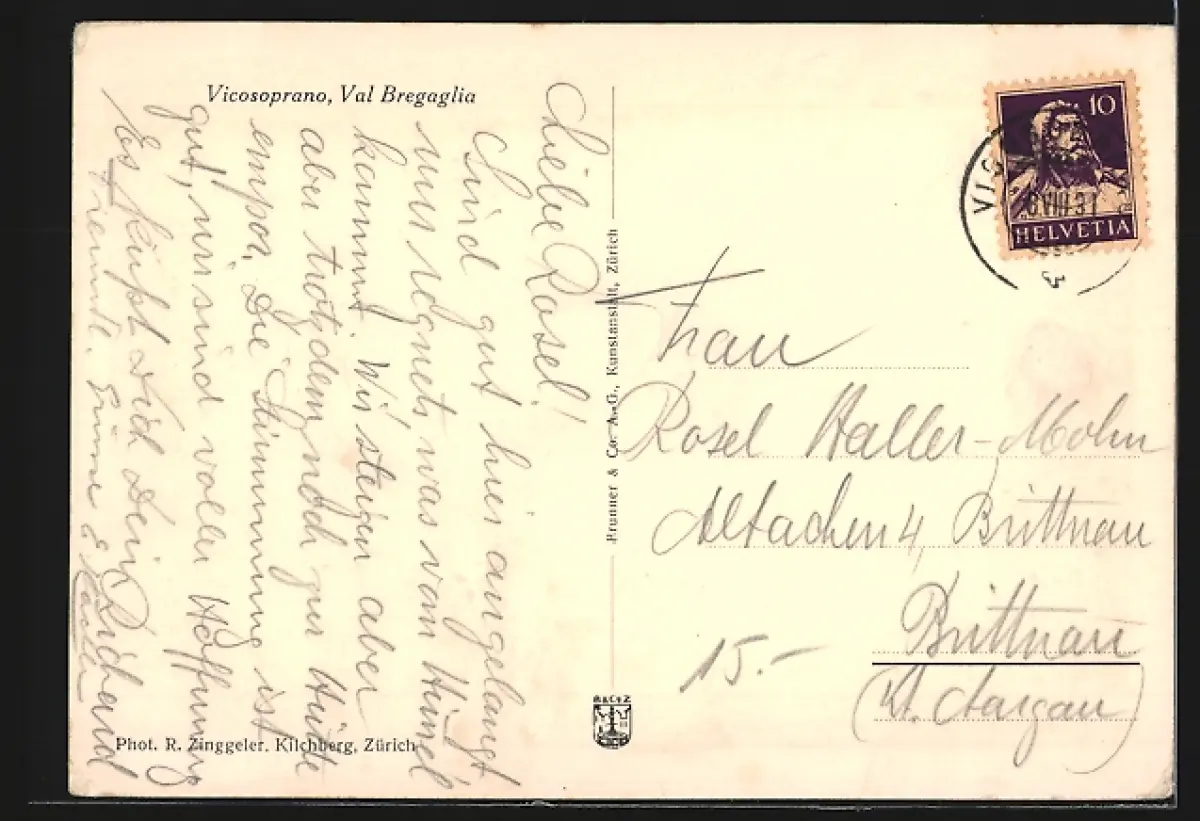 Vicosoprano, Val Bregaglia
Liebe Rosel!
Sind gut hier angelangt
nun regnets was vom Himel
kommt. Wir steigen aber
aber trotzdem noch zur Hütte
empor. Die Stimmmung ist
gut, wir sind voller Hoffnung
Es küsst Dich Dein Richard
Grüsse
Phot. R. Zinggeler, Kilchberg, Zürich
Brunner & Co. A.-G., Kunstanstalt, Zürich
B & C. Z
10
HELVETIA
VIC
8 VIII 31
Frau
Rosel Haller-Mohn
Altachen 4, Brittnau
Brittnau
(Kt. Aargau)
15.-